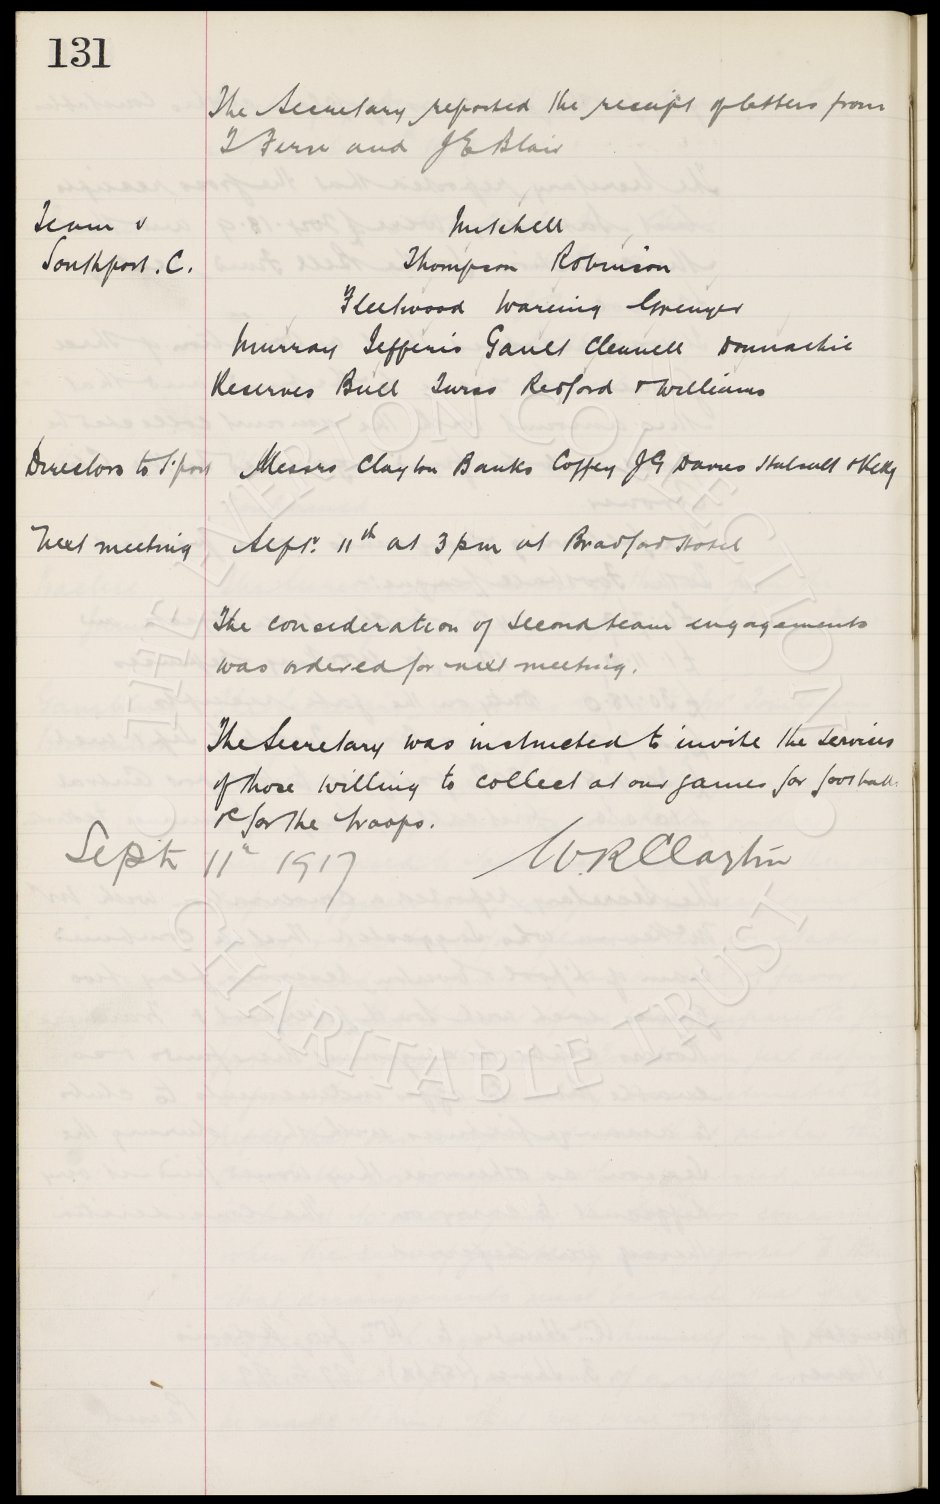 131
The Secretary reported the receipt of letters from
T Fern and J E Blair
Team v
Southport. C.
Mitchell
Thompson Robinson
Fleetwood Wareing Grenyer
Murray Jefferis Gault Clennell Donnachie
Reserves Bull Turss Redford & Williams
Directors to S'port
Messrs Clayton Banks Coffey J G Davies Halsall & Kelly
Next meeting
Septr. 11th at 3 pm at Bradford Hotel
The consideration of second team engagements
was ordered for next meeting.
The Secretary was instructed to invite the services
of those willing to collect at our games for footballs
&c for the troops.
Sept 11th 1917
W.R Clayton
THE EVERTON COLLECTION
CHARITABLE TRUST